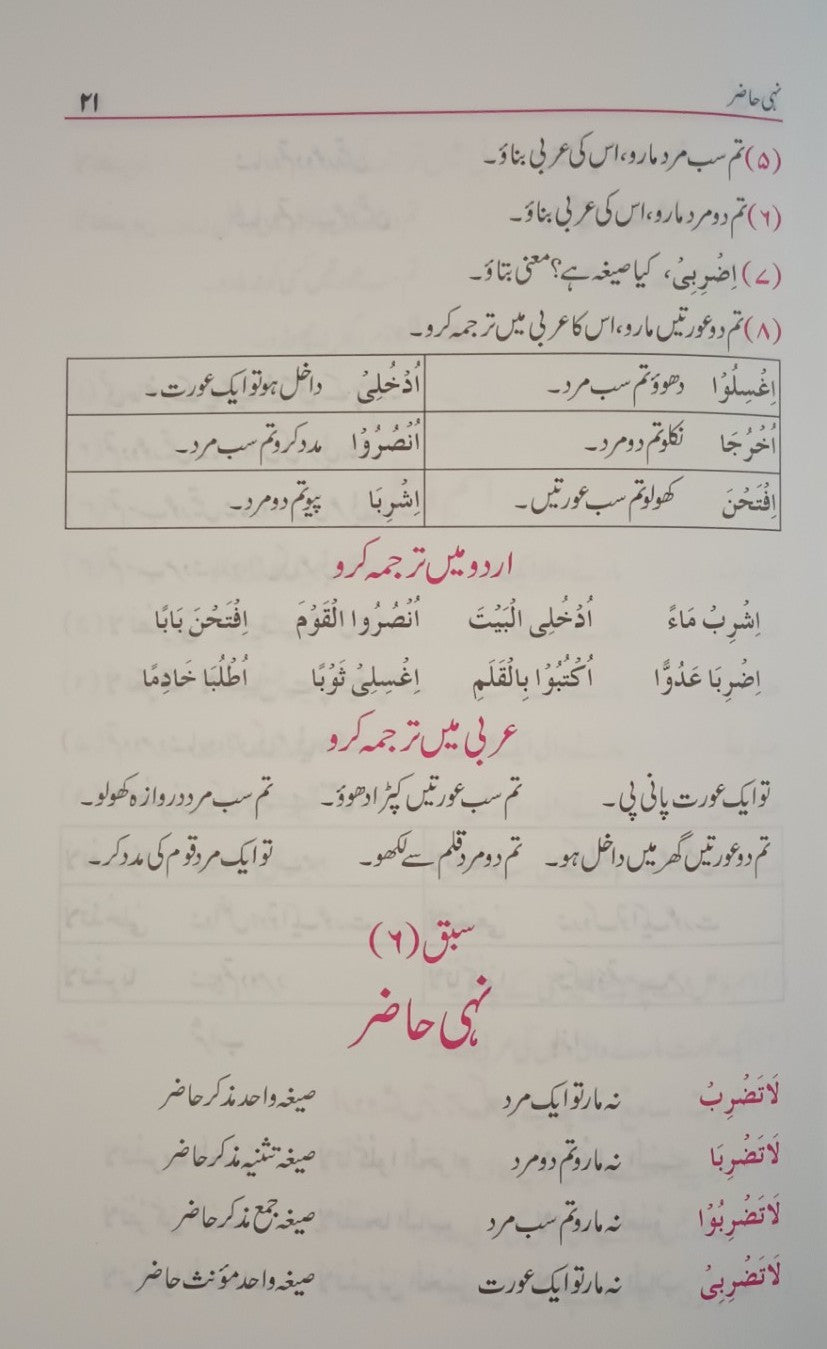 نہی حاضر ۲۱
(۵) تم سب مرد مارو، اس کی عربی بناؤ۔
(۶) تم دو مرد مارو، اس کی عربی بناؤ۔
(۷) اِضْرِبِیْ، کیا صیغہ ہے؟ معنی بتاؤ۔
(۸) تم دو عورتیں مارو، اس کا عربی میں ترجمہ کرو۔
اِغْسِلُوْا دھوؤ تم سب مرد۔ اُدْخُلِیْ داخل ہو تو ایک عورت۔
اُخْرُجَا نکلو تم دو مرد۔ اُنْصُرُوْا مدد کرو تم سب مرد۔
اِفْتَحْنَ کھولو تم سب عورتیں۔ اِشْرِبَا پیو تم دو مرد۔
اردو میں ترجمہ کرو
اِشْرِبْ مَاءً اُدْخُلِی الْبَیْتَ اُنْصُرُوا الْقَوْمَ اِفْتَحْنَ بَابًا
اِضْرِبَا عَدُوًّا اُکْتُبُوْا بِالْقَلَمِ اِغْسِلِیْ ثَوْبًا اُطْلُبَا خَادِمًا
عربی میں ترجمہ کرو
تو ایک عورت پانی پی۔ تم سب عورتیں کپڑا دھوؤ۔ تم سب مرد دروازہ کھولو۔
تم دو عورتیں گھر میں داخل ہو۔ تم دو مرد قلم سے لکھو۔ تو ایک مرد قوم کی مدد کر۔
سبق (۶)
نہی حاضر
لَاتَضْرِبْ نہ مار تو ایک مرد صیغہ واحد مذکر حاضر
لَاتَضْرِبَا نہ مارو تم دو مرد صیغہ تثنیہ مذکر حاضر
لَاتَضْرِبُوْا نہ مارو تم سب مرد صیغہ جمع مذکر حاضر
لَاتَضْرِبِیْ نہ مار تو ایک عورت صیغہ واحد مؤنث حاضر